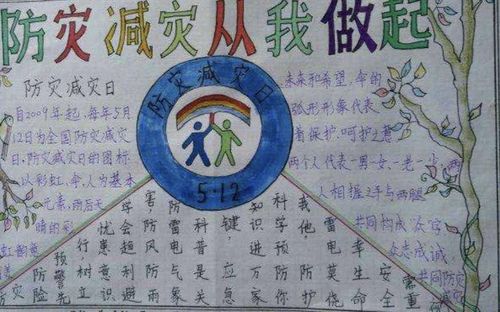 防灾减灾从我做起
防灾减灾日
自2009年起，每年5月
12日为全国防灾减灾
日，防灾减灾日的图标
以彩虹、伞、人为基本
元素，雨后天
晴的彩
防灾减灾日
5·12
未来和希望，伞的
弧形形象代表
着保护、呵护之意
两个人代表一男一女、一老一少，两
人相握之手与两腿
共同构成"众"字
众志成诚，
共同防灾
防灾险
预警先
行，树立
忧患意识
学会利避
害，防风雨
防雷电气象
科普是关
键，应急
知识进万家
科学预防你
我他，防护
雷电莫侥
幸，生命
安全
需重